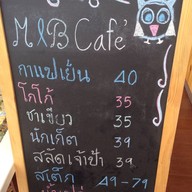 M&B Cafe'
กาแฟเย็น 40
โกโก้ 35
ชาเขียว 35
นักเก็ต 39
สลัดเจ้าป้า 39
สเต็ก 49-79